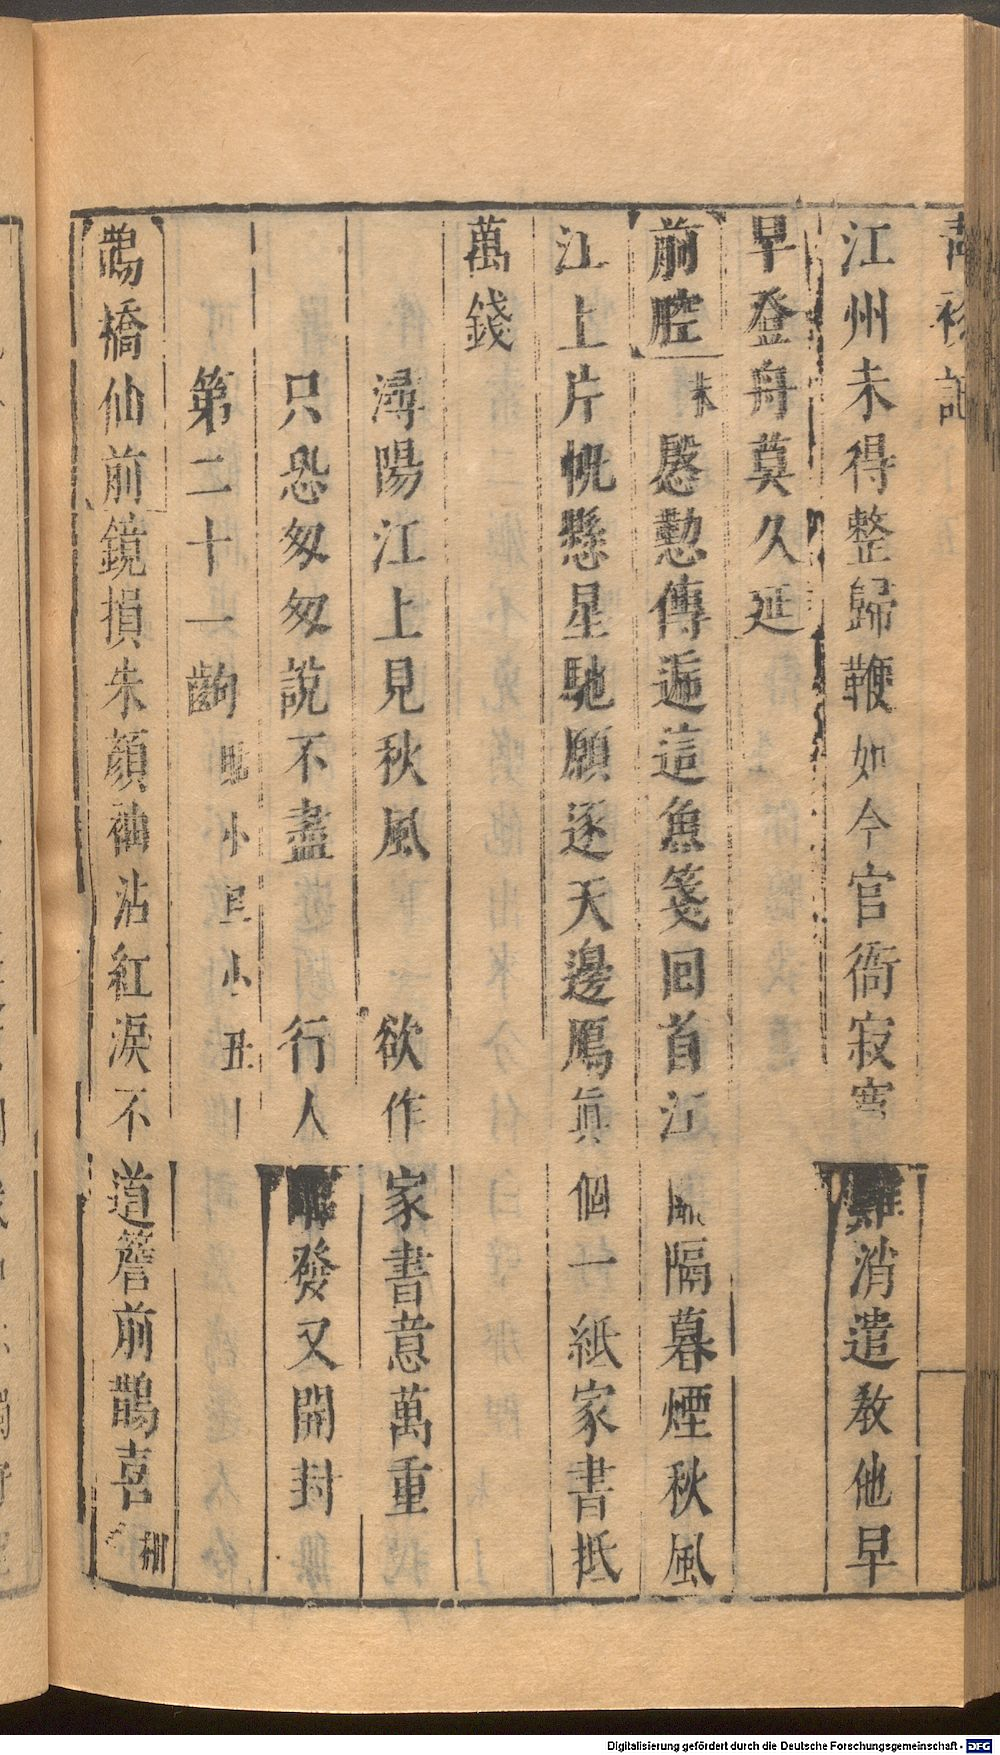 青衫記
江州未得整歸鞭如今官衙寂寞難消遣教他早
早登舟莫久延
前腔末慇懃傳遞這魚箋回首江風隔暮煙秋風
江上片帆懸星馳願逐天邊鴈眞個一紙家書抵
萬錢
潯陽江上見秋風 欲作家書意萬重
只恐匆匆說不盡 行人臨發又開封
第二十一齣 小旦小丑
鵲橋仙前鏡損朱顏袖沾紅淚不道簷前鵲喜
Digitalisierung gefördert durch die Deutsche Forschungsgemeinschaft - DFG